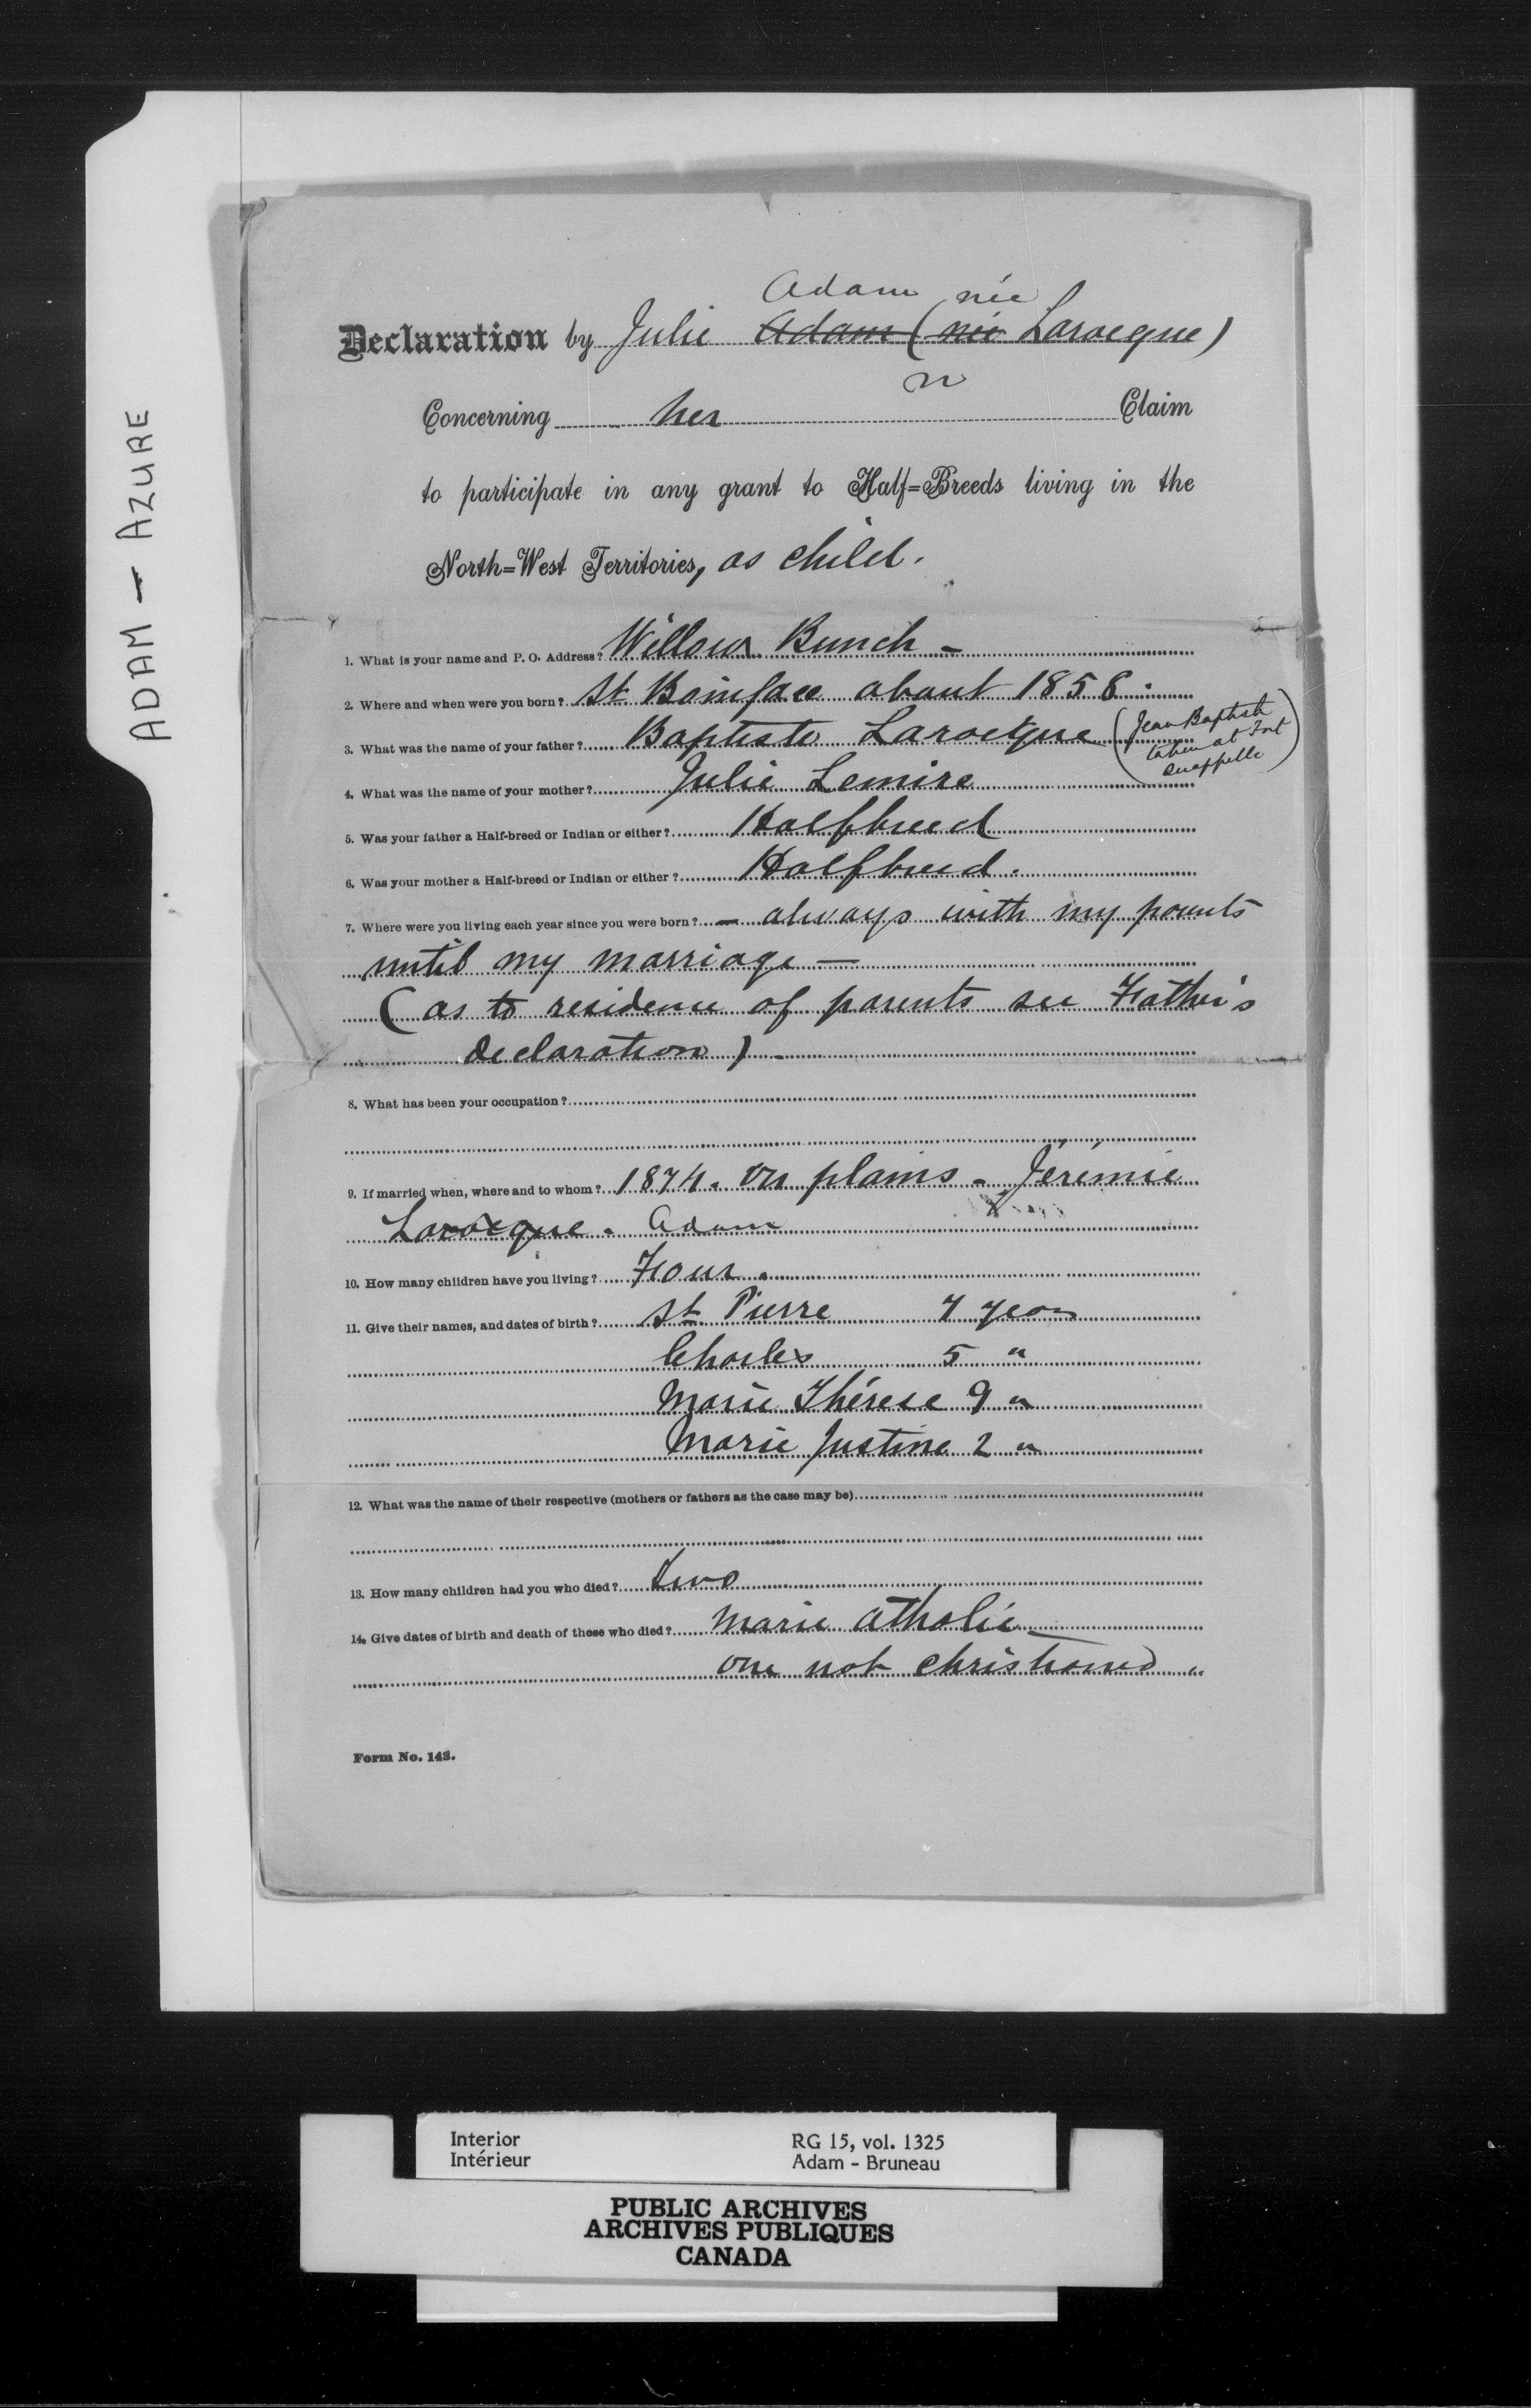 ADAM - AZURE
Adam née
Declaration by Julie Adam (née Larocque)
Concerning her Claim
to participate in any grant to Half=Breeds living in the
North=West Territories, as child.
1. What is your name and P. O. Address? Willow Bunch -
2. Where and when were you born? St Boniface about 1858.
3. What was the name of your father? Baptiste Larocque (Jean Baptiste
taken at Fort
Quappelle)
4. What was the name of your mother? Julie Lemire
5. Was your father a Half-breed or Indian or either? Halfbreed
6. Was your mother a Half-breed or Indian or either? Halfbreed.
7. Where were you living each year since you were born? - always with my parents
until my marriage -
(as to residence of parents see Father's
declaration) -
8. What has been your occupation?
9. If married when, where and to whom? 1874. on plains - Jérémie
Larocque. Adam
10. How many children have you living? Four.
11. Give their names, and dates of birth? St Pierre 7 years
Charles 5 "
Marie Thérese 9 "
Marie Justine 2 "
12. What was the name of their respective (mothers or fathers as the case may be)
13. How many children had you who died? two
14. Give dates of birth and death of those who died? Marie Atholie -
one not christianed "
Form No. 143.
Interior RG 15, vol. 1325
Intérieur Adam - Bruneau
PUBLIC ARCHIVES
ARCHIVES PUBLIQUES
CANADA